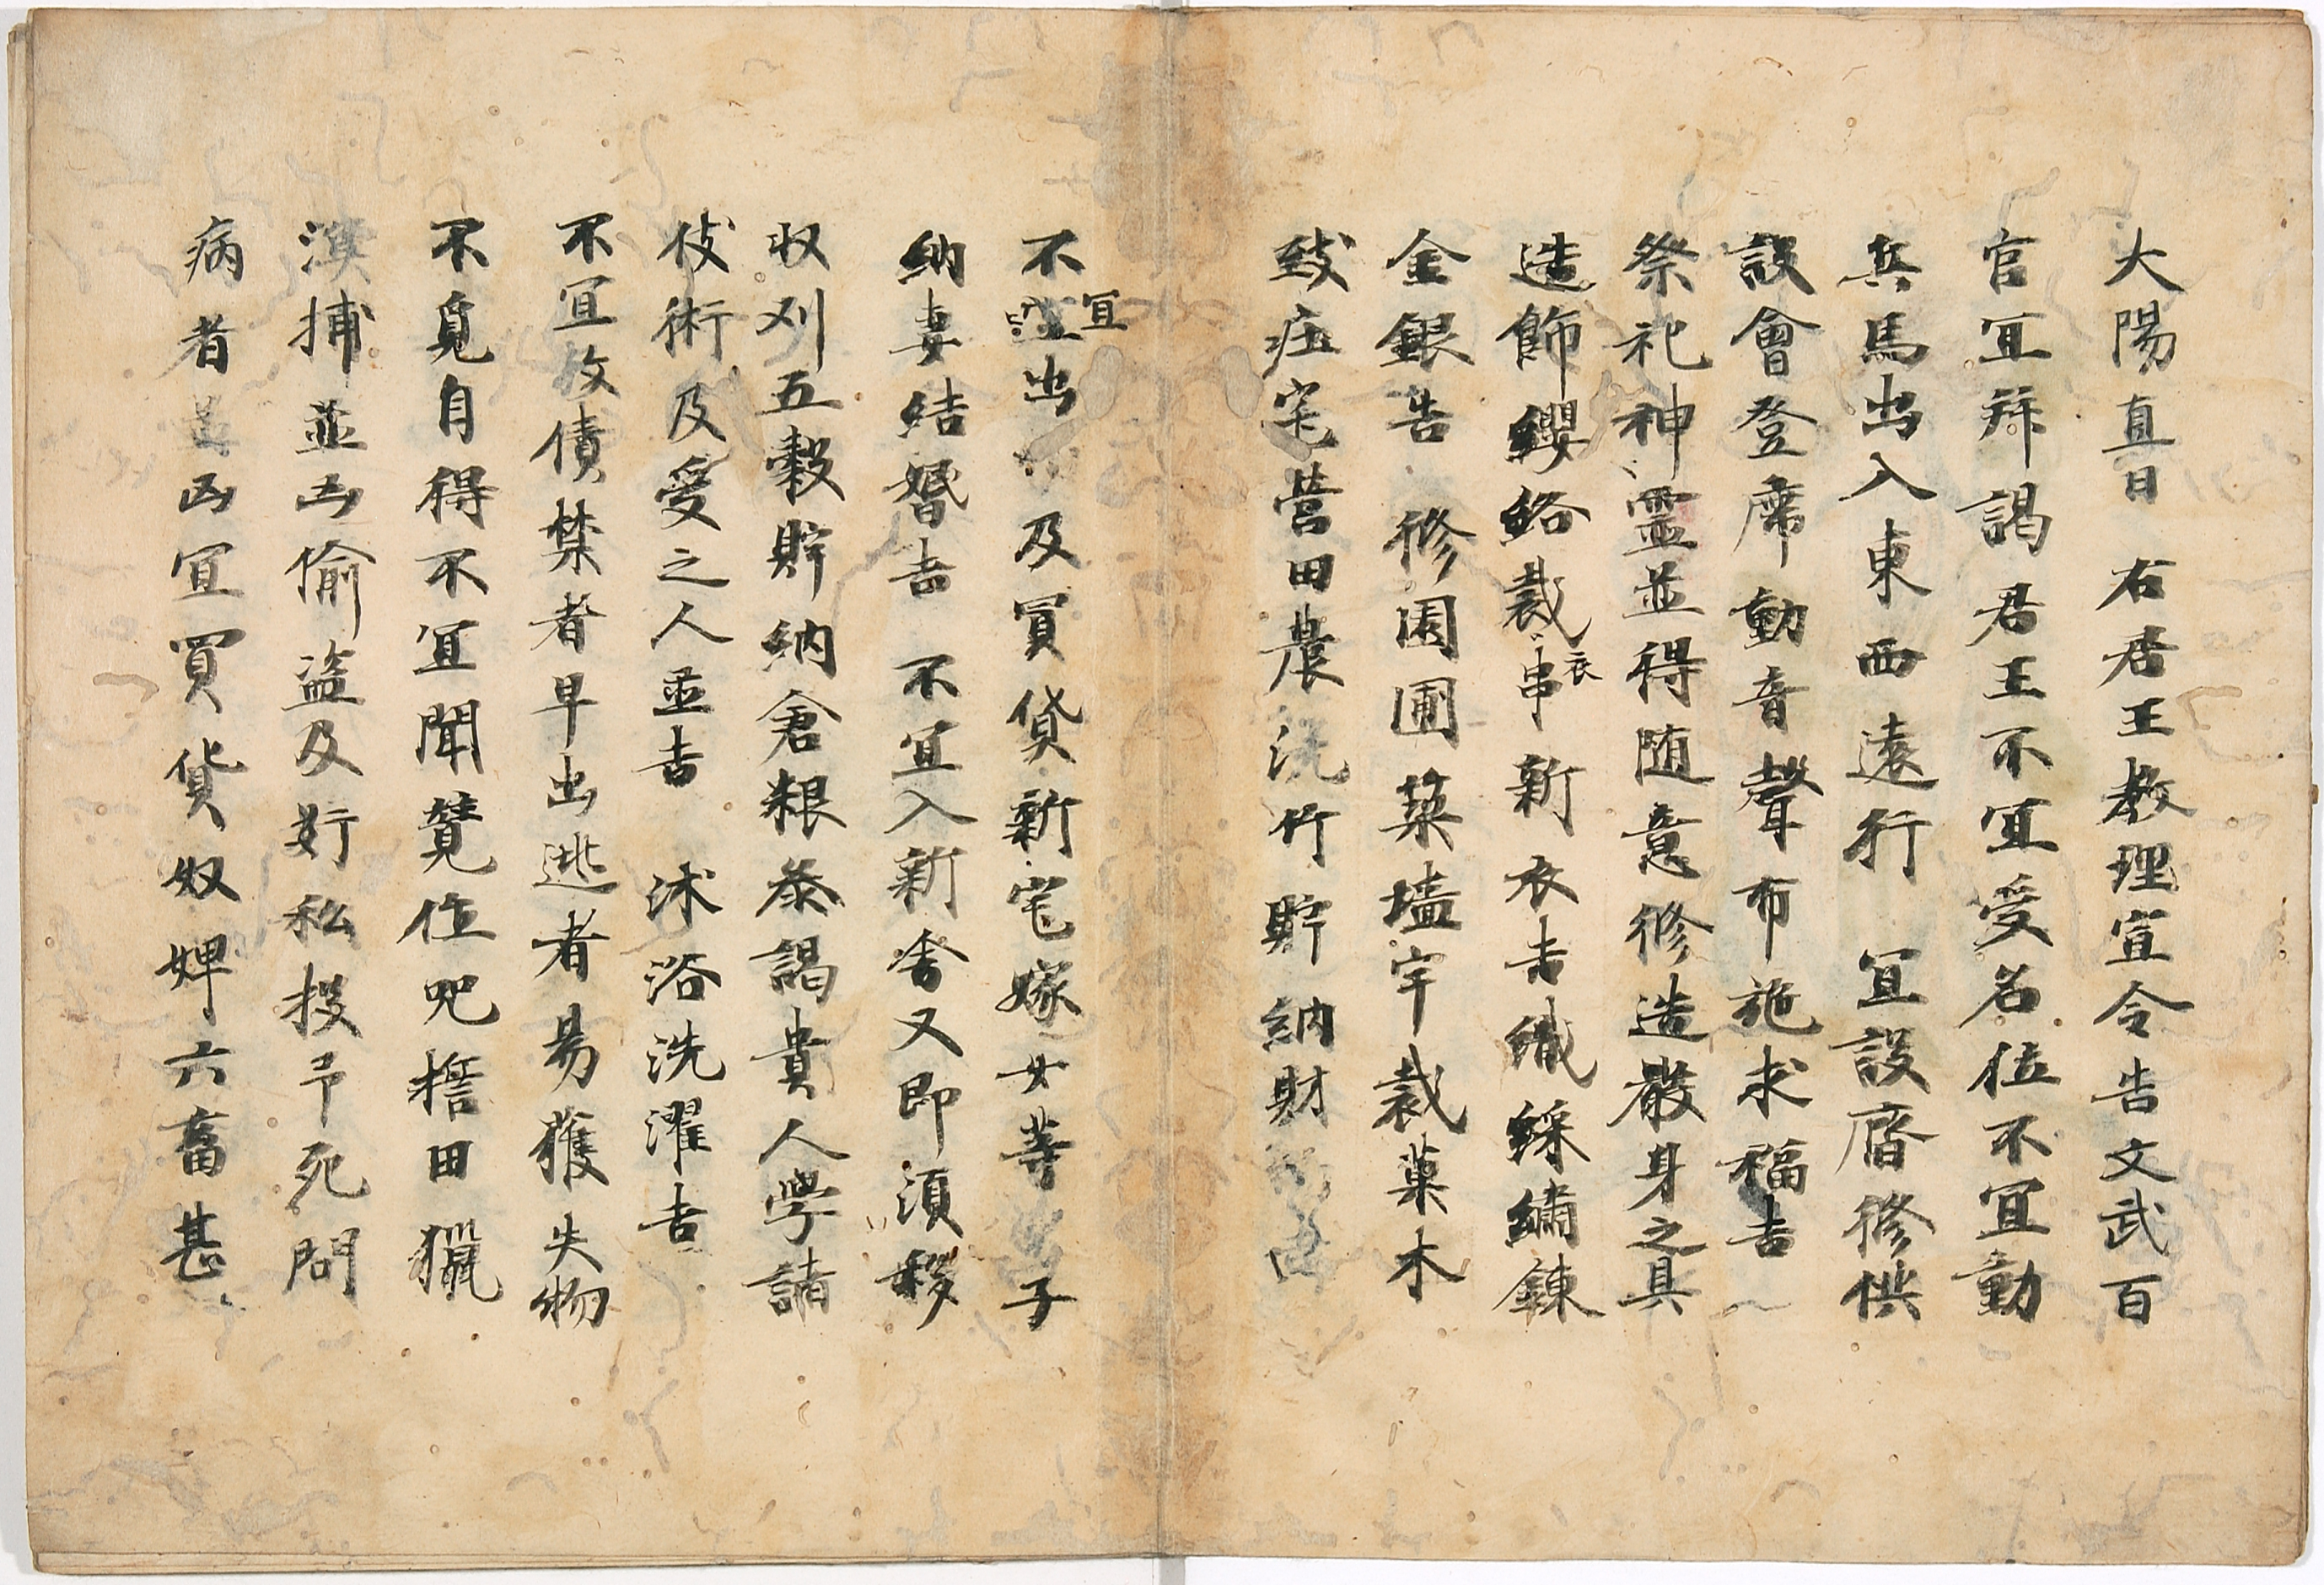 大陽直日 右君王教理宣令告文武百
官宜拜謁君王不宜受名位不宜動
兵馬出入東西遠行 宜設齋修供
設會登席動音聲布施求福吉
祭祀神霊並得随意修造嚴身之具
造飾纓絡裁衣串新衣吉織綵繡鍊
金銀吉 修園圃菜墻宇裁菓木
致庄宅営田農洗竹貯納財
不宜出及買貸新宅嫁女等子
納妻結婚吉 不宜入新舎又即須移
収刈五穀貯納倉粮叅謁貴人學諸
伎術及受之人並吉 沐浴洗濯吉
不宜放債禁者早出逃者易獲失物
不覓自得不宜聞鼓位呪誓田獵
漁捕並凶偷盜及奸私投予死問
病者並凶宜買貨奴婢六畜甚